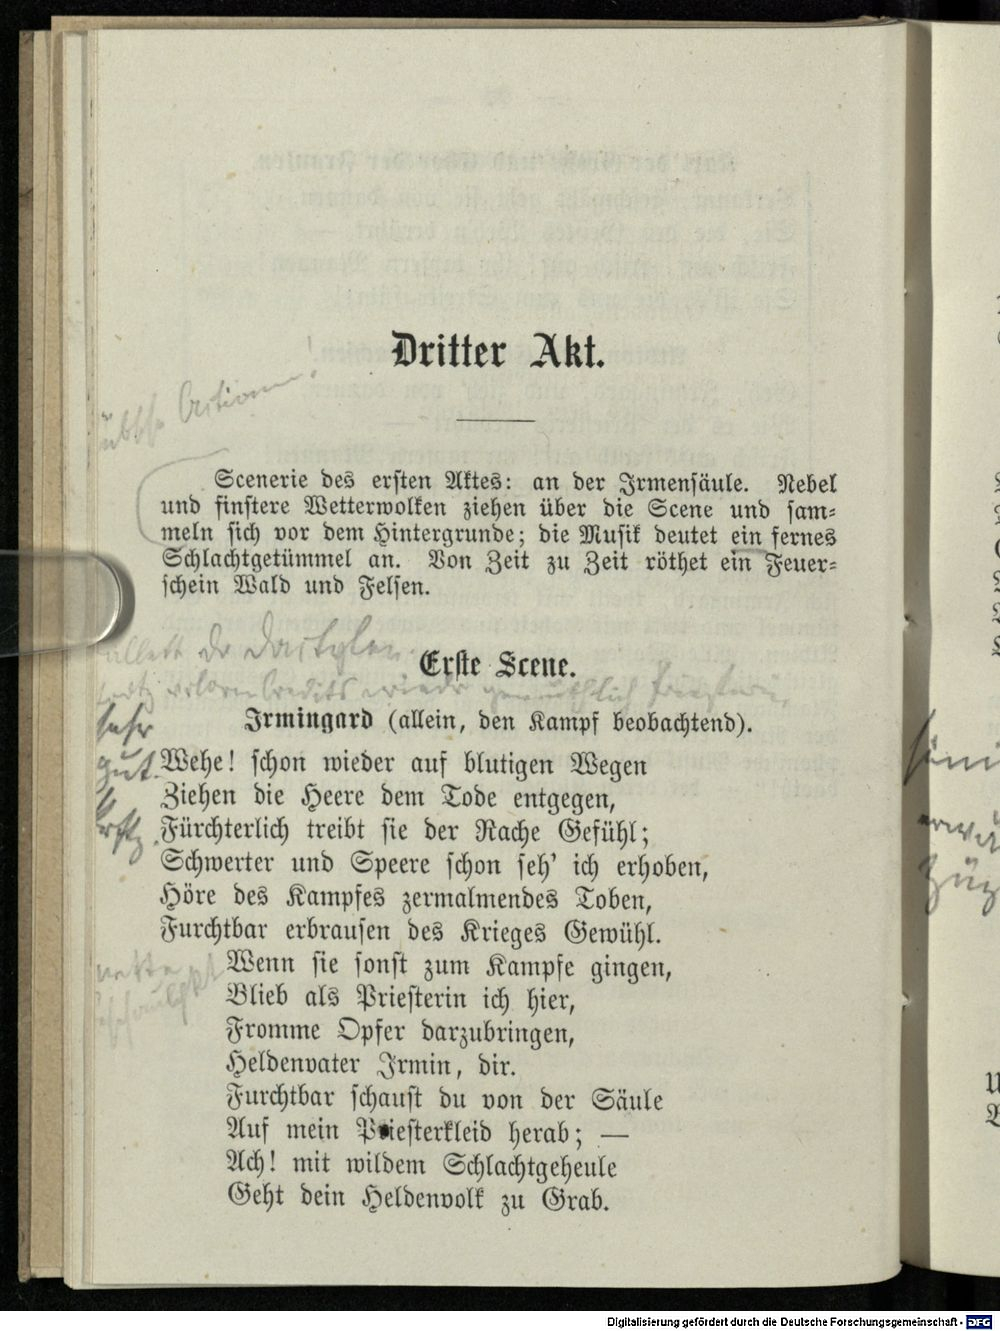 Dritter Akt.
Scenerie des ersten Aktes: an der Irmensäule. Nebel
und finstere Wetterwolken ziehen über die Scene und sam-
meln sich vor dem Hintergrunde; die Musik deutet ein fernes
Schlachtgetümmel an. Von Zeit zu Zeit röthet ein Feuer-
schein Wald und Felsen.
Erste Scene.
Irmingard (allein, den Kampf beobachtend).
sehr
gut.
Wehe! schon wieder auf blutigen Wegen
Ziehen die Heere dem Tode entgegen,
Fürchterlich treibt sie der Rache Gefühl;
Schwerter und Speere schon seh' ich erhoben,
Höre des Kampfes zermalmendes Toben,
Furchtbar erbrausen des Krieges Gewühl.
Wenn sie sonst zum Kampfe gingen,
Blieb als Priesterin ich hier,
Fromme Opfer darzubringen,
Heldenvater Irmin, dir.
Furchtbar schaust du von der Säule
Auf mein Priesterkleid herab; —
Ach! mit wildem Schlachtgeheule
Geht dein Heldenvolk zu Grab.
Digitalisierung gefördert durch die Deutsche Forschungsgemeinschaft - DFG